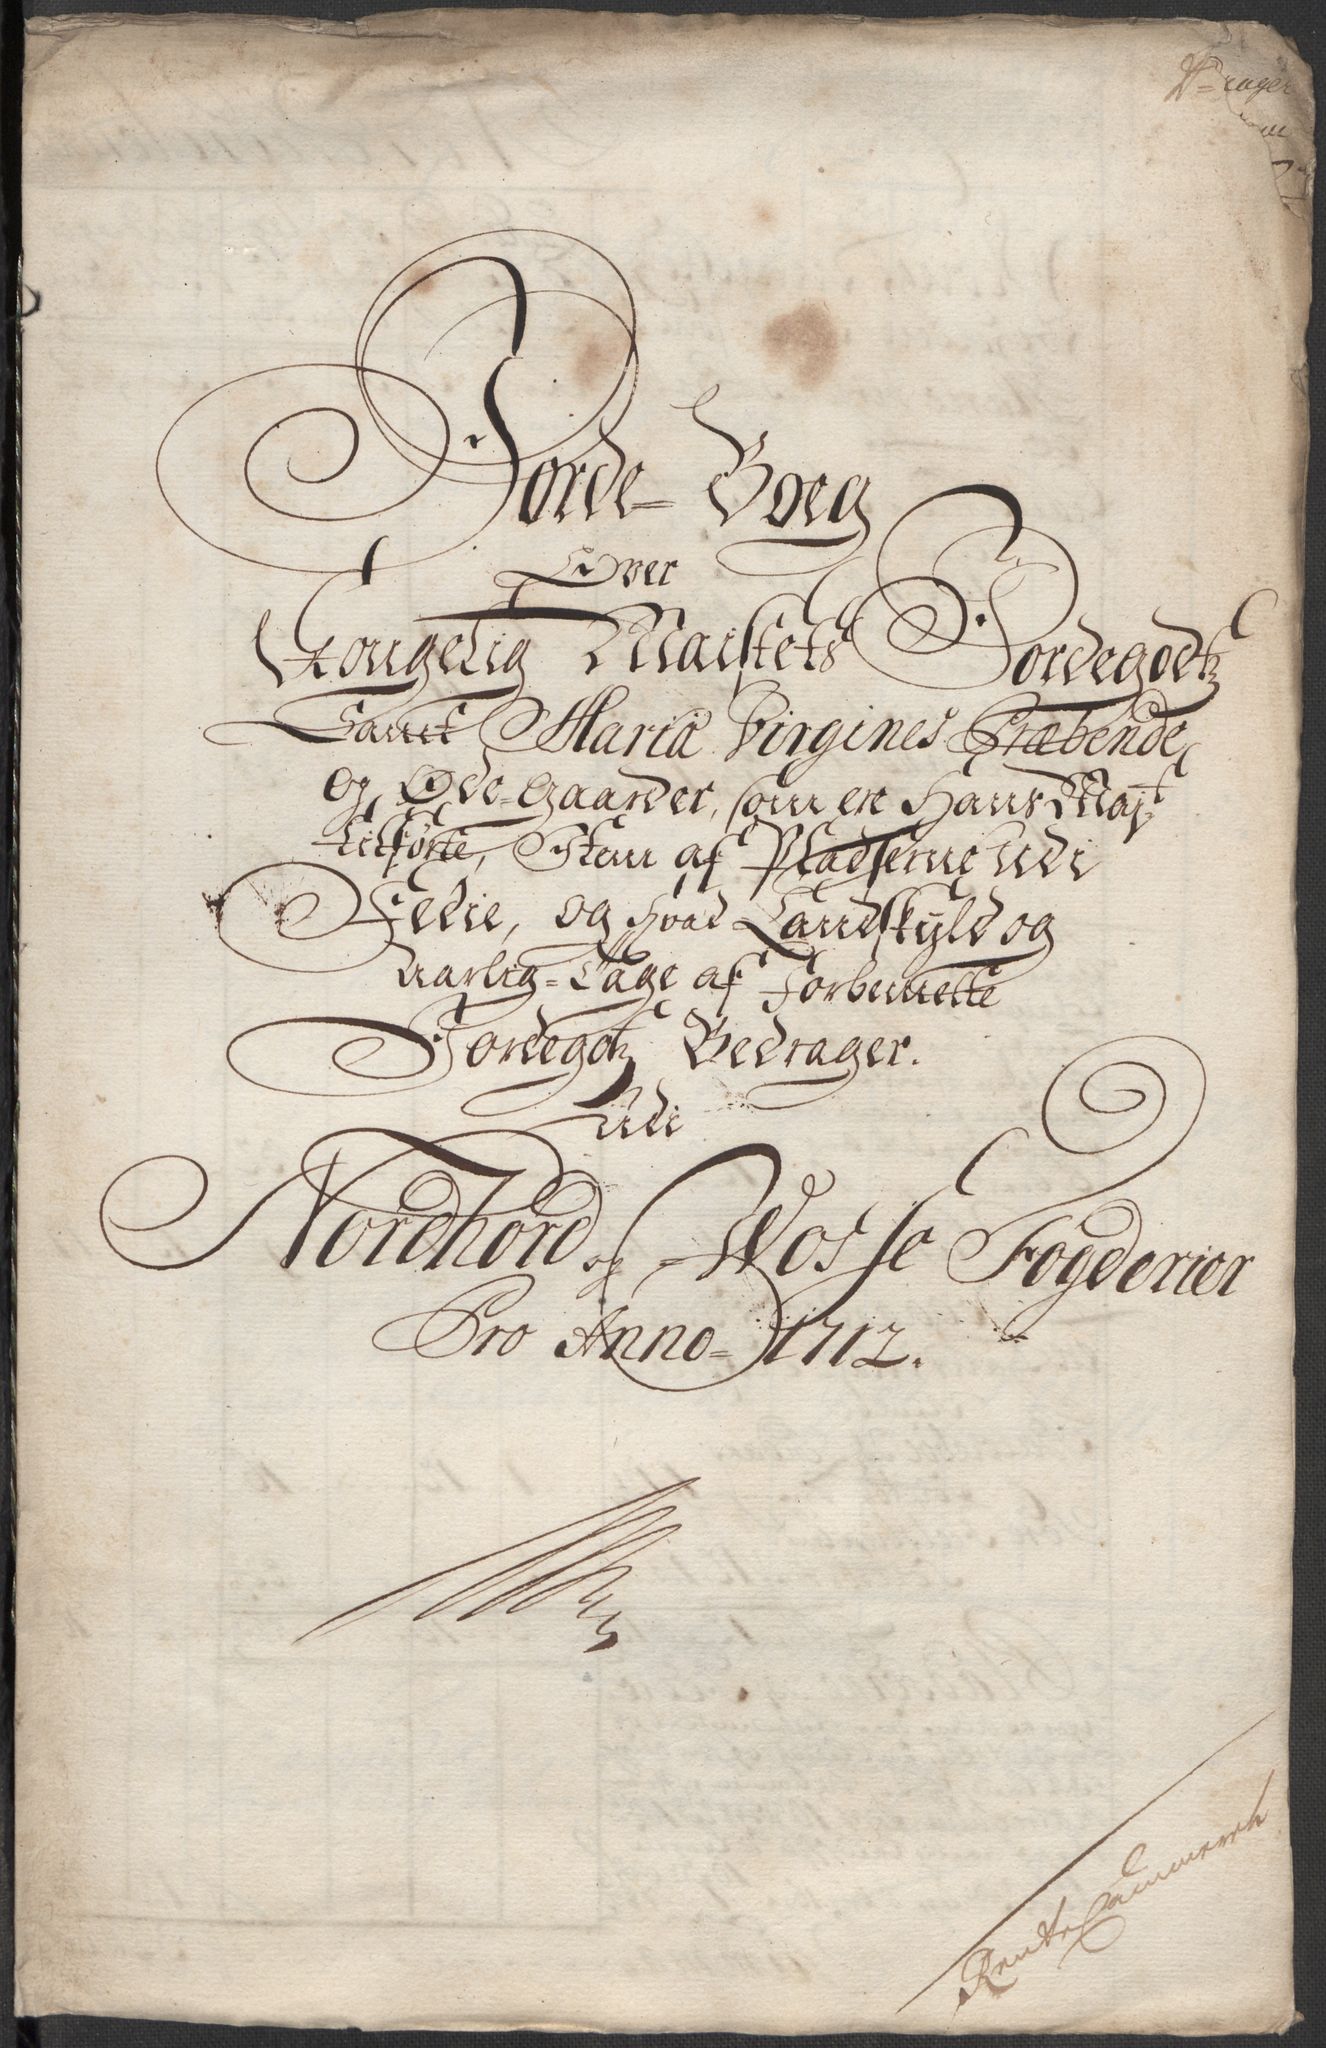 Jorde-Boeg
Over
Kongelig Maÿtets Jordegodtz
Sanct Mariæ Virgines Præbende
og Øde-Gaarder, som ere Hans Mayt
tilhørte, Item af Pladserne udi
Fedie, og hvad Landskÿld og
Aarlig-Tage af forbemelte
Jordegotz Bedrager.
Udi
Nordhord og Wosse Fogderier
Pro Anno-1712.
RentteCammerets